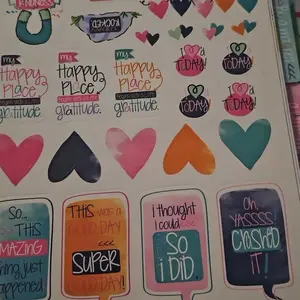 KINDNESS
ROOTED
my
Happy
Place
gratitude.
my
Happy
Place
gratitude.
my
Happy
Place
gratitude.
a
TODAY!
a
TODAY!
TODAY!
TODAY!
So...
THIS
AMAZING
thing just
happened
THIS was a
GOOD DAY
SUPER
GOOD DAY!
i thought
i could
So
i DiD.
Oh,
YASSSS
CRUSHED
IT!